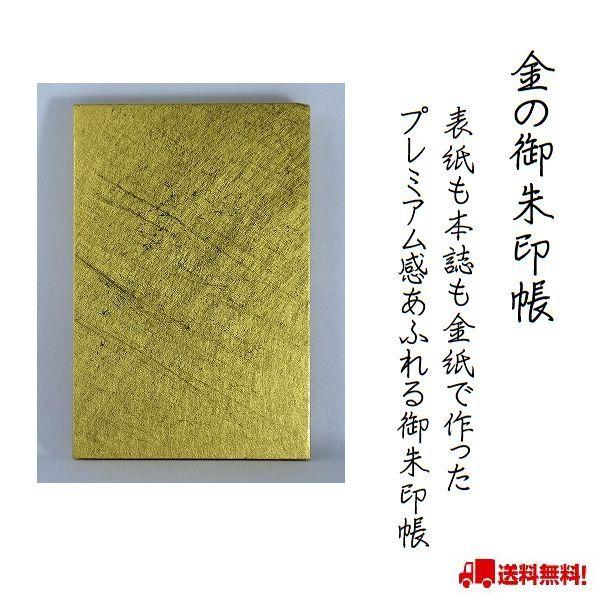 金の御朱印帳
表紙も本誌も金紙で作った
プレミアム感あふれる御朱印帳
送料無料!